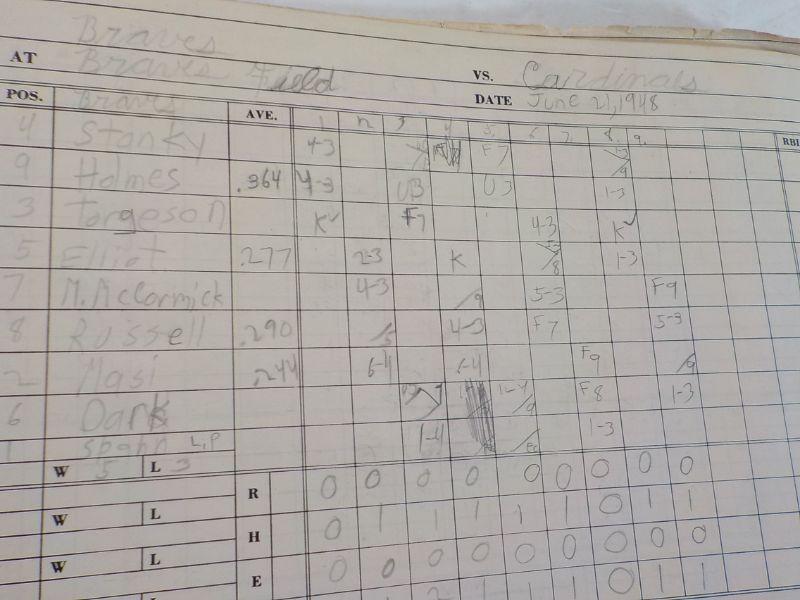 Braves
AT Braves Field VS. Cardinals
DATE June 21, 1948
POS. Braves AVE. 1 2 3 4 5. 6 7. 8. 9. RBI
4 Stanky 4-3 F7
9 Holmes .364 4-3 U3 U3 1-3
3 Torgeson K F7 4-3 K
5 Elliot .277 2-3 K 8 1-3
7 M. McCormick 4-3 9 5-3 F9
8 Russell .290 5 4-3 F7 5-3
2 Masi .244 6-4 6-4 F9 9
6 Dark 9 F8 1-3
1 Spahn L.P 1-4 1-3
W 5 L 3
R 0 0 0 0 0 0 0 0 0
W L
H 0 1 1 1 1 1 0 1 1
W L
E 0 0 0 0 0 0 0 0 0
W L
2 1 1 0 1 1